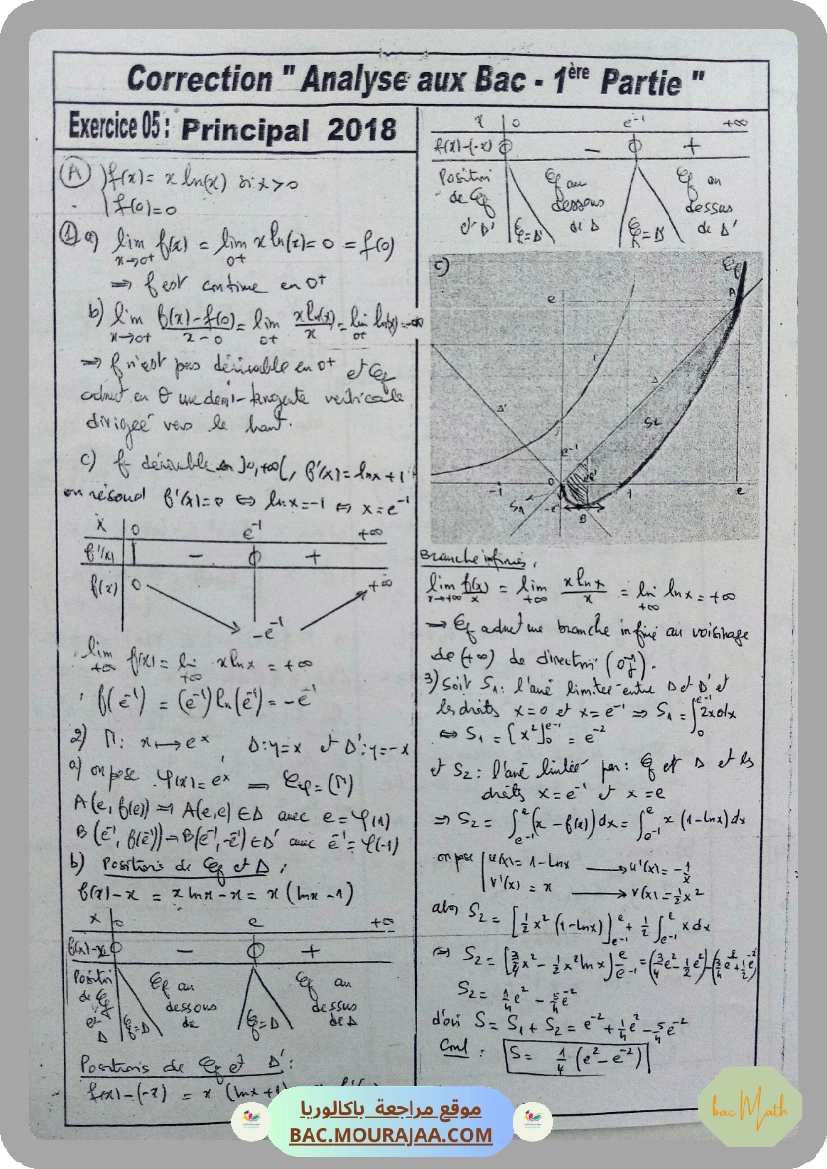 Correction " Analyse aux Bac - 1ère Partie "
Exercice 05 : Principal 2018
(A) { f(x) = x ln(x) si x > 0
f(0) = 0
1) a) lim x→0+ f(x) = lim 0+ x ln(x) = 0 = f(0)
⇒ f est continue en 0+
b) lim x→0+ f(x)-f(0) / x-0 = lim 0+ x ln(x) / x = lim 0+ ln(x) = -∞
⇒ f n'est pas dérivable en 0+ et Cf
admet en O une demi-tangente verticale
dirigée vers le haut.
c) f dérivable en ]0,+∞[, f'(x) = lnx + 1
on résoud f'(x)=0 ⇔ lnx = -1 ⇔ x = e⁻¹
x 0 e⁻¹ +∞
f'(x) - 0 +
f(x) 0 -e⁻¹ +∞
lim +∞ f(x) = lim x lnx = +∞
f(e⁻¹) = (e⁻¹) ln(e⁻¹) = -e⁻¹
2) Γ: x ↦ eˣ, Δ: y = x et Δ': y = -x
a) on pose φ(x) = eˣ ⇒ Cφ = (Γ)
A(e, f(e)) ⇒ A(e,e) ∈ Δ avec e = φ(1)
B(e⁻¹, f(e⁻¹)) ⇒ B(e⁻¹, -e⁻¹) ∈ Δ' avec e⁻¹ = φ(-1)
b) Positions de Cf et Δ :
f(x) - x = x lnx - x = x (lnx - 1)
x 0 e +∞
f(x)-x 0 - 0 +
Position de Cf et Δ
Cf = Δ
Cf au dessous de
Cf = Δ
Cf au dessus de Δ
Positions de Cf et Δ' :
f(x) - (-x) = x (lnx + 1)
x 0 e⁻¹ +∞
f(x)-(-x) 0 - 0 +
Position de Cf et Δ'
Cf = Δ'
Cf au dessous de Δ
Cf = Δ'
Cf au dessus de Δ'
c)
Cf
A
e
Γ
Δ
Δ'
S2
e⁻¹
-1
0
1
e
S1
-e⁻¹
B
Branche infinies :
lim x→+∞ f(x)/x = lim +∞ x lnx / x = lim +∞ lnx = +∞
→ Cf admet une branche infinie au voisinage
de (+∞) de direction (Oj).
3) Soit S1 : l'aire limitée entre Δ et Δ' et
les droits x = 0 et x = e⁻¹ ⇒ S1 = ∫₀^e⁻¹ 2x dx
⇔ S1 = [x²]₀^e⁻¹ = e⁻²
et S2 : l'aire limitée par : Cf et Δ et les
droits x = e⁻¹ et x = e
⇒ S2 = ∫e⁻¹^e (x - f(x)) dx = ∫e⁻¹^e x (1 - lnx) dx
on pose { u(x) = 1 - lnx → u'(x) = -1/x
v'(x) = x → v(x) = 1/2 x²
alors S2 = [1/2 x² (1 - lnx)]e⁻¹^e + 1/2 ∫e⁻¹^e x dx
⇔ S2 = [3/4 x² - 1/2 x² ln x]e⁻¹^e = (3/4 e² - 1/2 e²) - (3/4 e⁻² + 1/2 e⁻²)
S2 = 1/4 e² - 5/4 e⁻²
d'où S = S1 + S2 = e⁻² + 1/4 e² - 5/4 e⁻²
Concl : S = 1/4 (e² - e⁻²)
موقع مراجعة باكالوريا
BAC.MOURAJAA.COM
bac Math